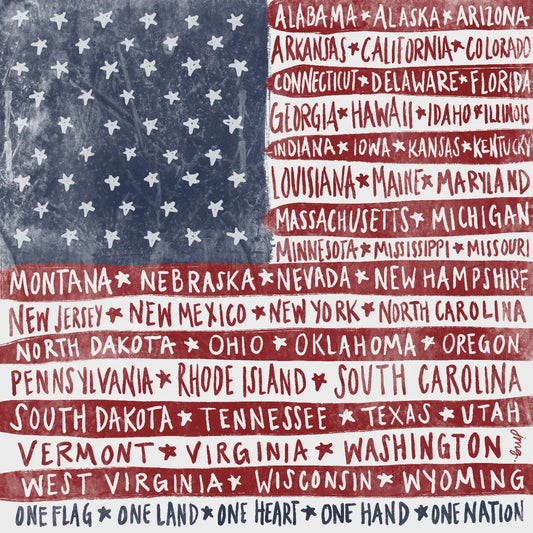 ALABAMA★ALASKA★ARIZONA
ARKANSAS★CALIFORNIA★COLORADO
CONNECTICUT★DELAWARE★FLORIDA
GEORGIA★HAWAII★IDAHO★ILLINOIS
INDIANA★IOWA★KANSAS★KENTUCKY
LOUISIANA★MAINE★MARYLAND
MASSACHUSETTS★MICHIGAN
MINNESOTA★MISSISSIPPI★MISSOURI
MONTANA★NEBRASKA★NEVADA★NEW HAMPSHIRE
NEW JERSEY★NEW MEXICO★NEW YORK★NORTH CAROLINA
NORTH DAKOTA★OHIO★OKLAHOMA★OREGON
PENNSYLVANIA★RHODE ISLAND★SOUTH CAROLINA
SOUTH DAKOTA★TENNESSEE★TEXAS★UTAH
VERMONT★VIRGINIA★WASHINGTON
WEST VIRGINIA★WISCONSIN★WYOMING
ONE FLAG★ONE LAND★ONE HEART★ONE HAND★ONE NATION